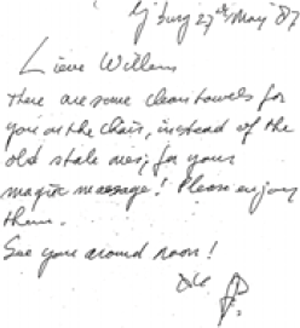 burg 27th May '87
Lieve Willem
There are some clean towels for
you on the chair, instead of the
old stale ones, for your
magic massage! Please enjoy
them.
See you around noon!